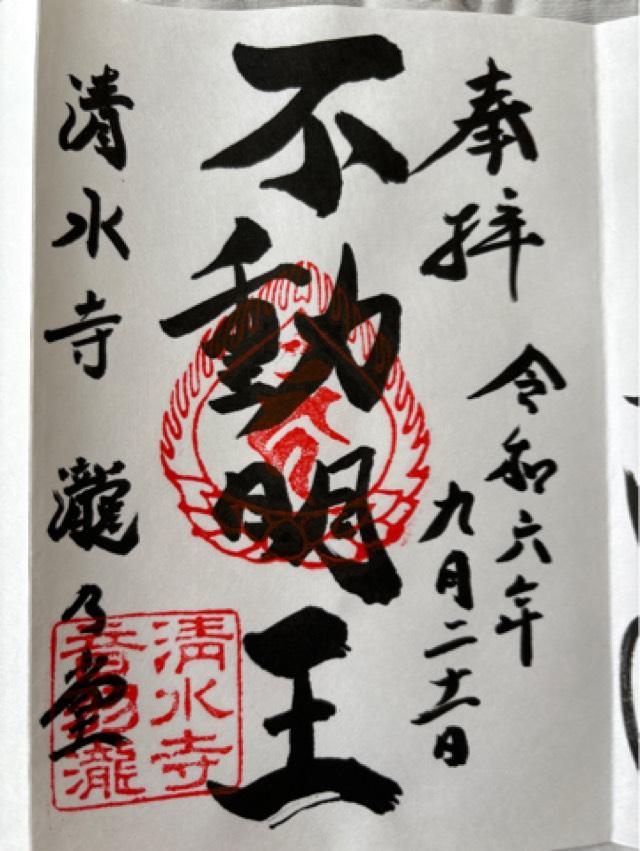 奉拝
令和六年
九月二十一日
不動明王
清水寺 瀧乃堂
清水寺
音羽瀧